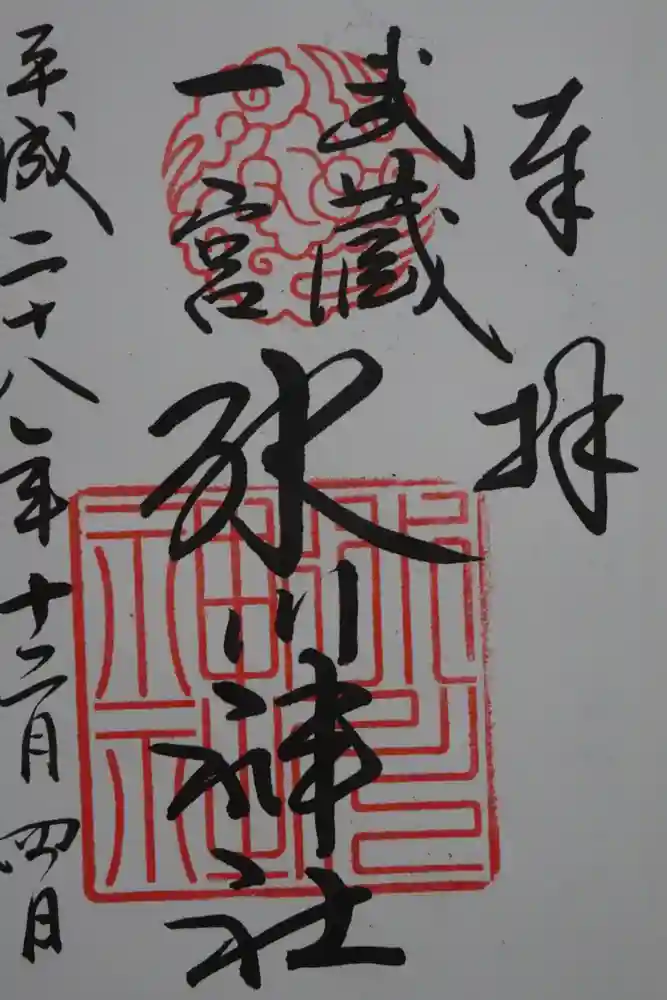 奉拝
武蔵
一宮
氷川神社
平成二十八年十二月四日